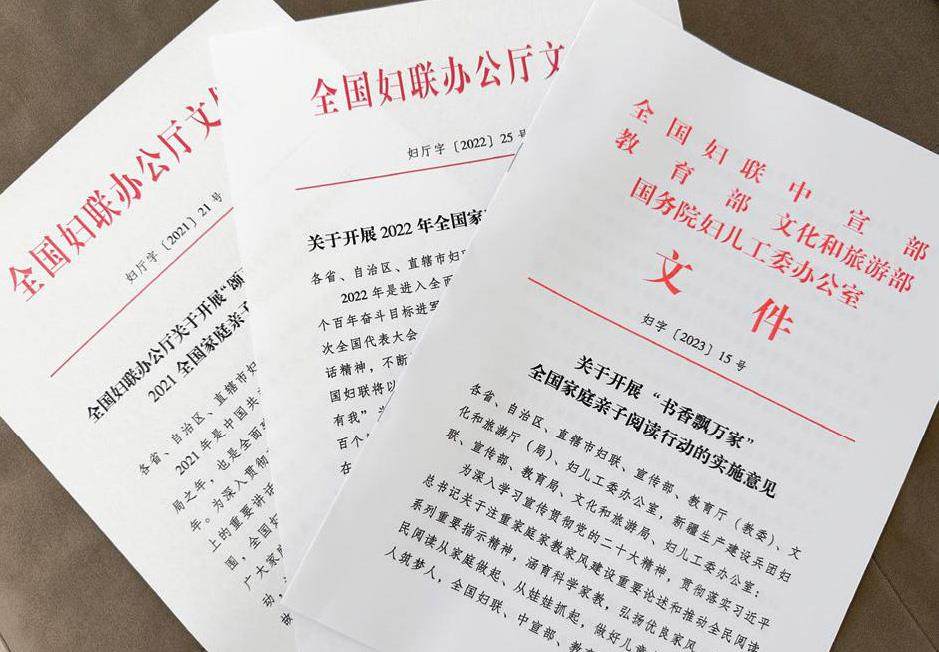 全国妇联办公厅文
妇厅字〔2021〕21号
全国妇联办公厅关于开展“颂
2021全国家庭亲子
各省、自治区、直辖市妇
2021年是中国共
局之年，也是全面
年。为深入贯彻
上的重要讲话
国，全国妇
广大家庭
动
全国妇联办公厅文
妇厅字〔2022〕25号
关于开展2022年全国家
各省、自治区、直辖市妇联
2022年是进入全面
个百年奋斗目标进军
次全国代表大会
话精神，不断
国妇联将以
有我”
百个
在
全国妇联中宣部
教育部 文化和旅游部
国务院妇儿工委办公室
文件
妇字〔2023〕15号
关于开展“书香飘万家”
全国家庭亲子阅读行动的实施意见
各省、自治区、直辖市妇联、宣传部、教育厅（教委）、文
化和旅游厅（局）、妇儿工委办公室，新疆生产建设兵团妇
联、宣传部、教育局、文化和旅游局、妇儿工委办公室：
为深入学习宣传贯彻党的二十大精神，贯彻落实习近平
总书记关于注重家庭家教家风建设重要论述和推动全民阅读
系列重要指示精神，涵育科学家教，弘扬优良家风
民阅读从家庭做起、从娃娃抓起，做好儿童
人筑梦人，全国妇联、中宣部、教育